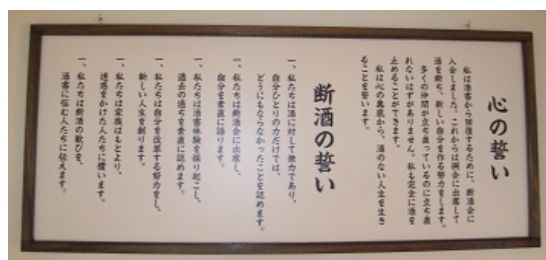 心の誓い
私は酒害から回復するために、断酒会に
入会しました。これからは例会に出席して
酒を断ち、新しい自分を作る努力をします。
多くの仲間が立ち直っているのに立ち直
れないはずがありません。私も完全に酒を
止めることができます。
私は心の奥底から、酒のない人生を生き
ることを誓います。
断酒の誓い
一、私たちは酒に対して無力であり、
自分ひとりの力だけでは、
どうにもならなかったことを認めます。
一、私たちは断酒会に出席し、
自分を素直に語ります。
一、私たちは酒害体験を掘り起こし、
過去の過ちを素直に認めます。
一、私たちは自分を改革する努力をし、
新しい人生を創ります。
一、私たちは家族はもとより、
迷惑をかけた人たちに償います。
一、私たちは断酒の歓びを、
酒害に悩む人たちに伝えます。